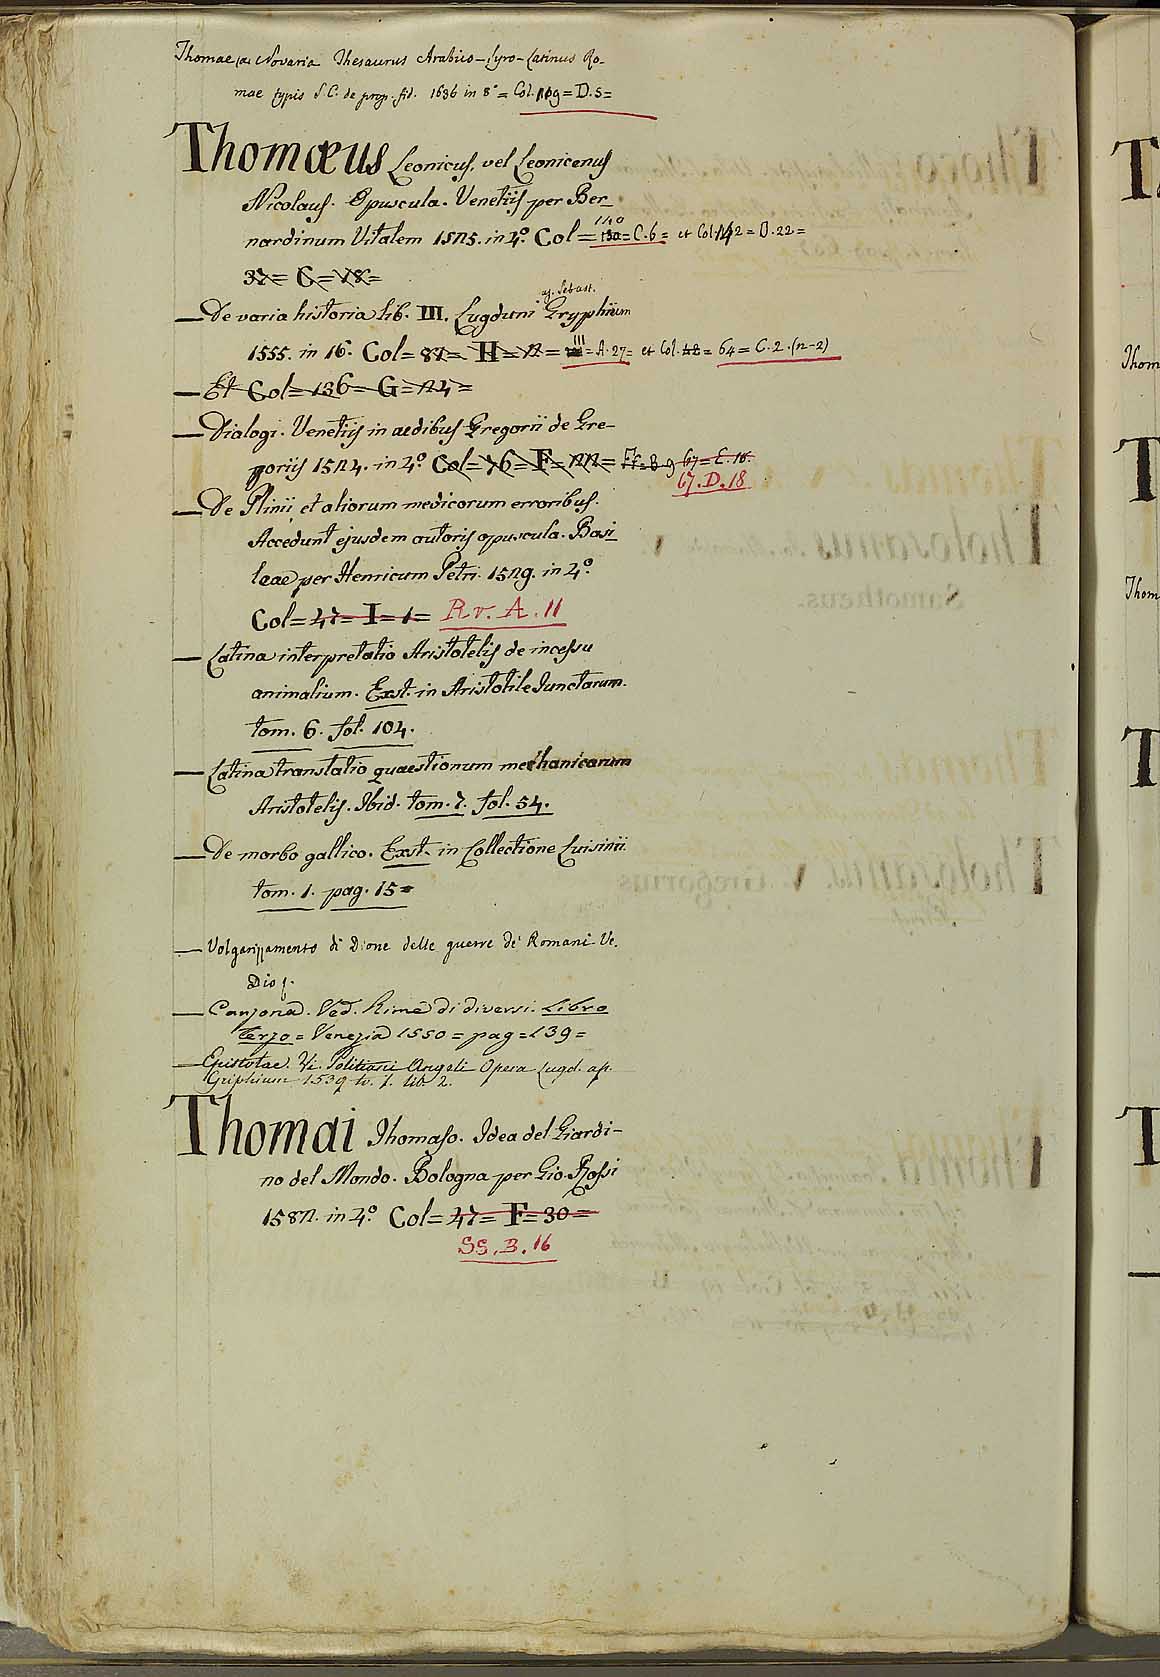 Thomae a Novaria Thesaurus Arabico-Syro-Latinus Ro-
mae typis S. C. de prop. fid. 1636 in 8° = Col. 119 = D. 5 =
Thomæus Leonicus, vel Leonicenus
Nicolaus. Opuscula. Venetiis per Ber-
nardinum Vitalem 1525. in 4°. Col = 130 = C. 6 = et Col. 142 = D. 22 =
140
37 = G = 18 =
— De varia historia lib. III. Lugduni Gryphium
ap. Sebast.
1555. in 16. Col = 87 = H = 12 = III = A. 27 = et Col. 42 = 64 = C. 2. (n-2)
— Et Col = 136 = G = 24 =
— Dialogi. Venetiis in aedibus Gregorii de Gre-
goriis 1524. in 4° Col = 76 = F = 22 = 67 = E. 18.
67. D. 18
— De Plinii, et aliorum medicorum erroribus.
Accedunt ejusdem autoris opuscula. Basi
leae per Henricum Petri. 1529. in 4°.
Col = 47 = I = 1 = Rv. A. 11
— Latina interpretatio Aristotelis de incessu
animalium. Ext. in Aristotile Junctarum.
tom. 6. fol. 104.
— Latina translatio quaestionum mechanicarum
Aristotelis. Ibid. tom. 7. fol. 54.
— De morbo gallico. Ext. in Collectione Luisini
tom. 1. pag. 15 =
— Volgarizzamento di Dione delle guerre de' Romani Ve.
Dio
— Canzona. Ved. Rime di diversi. Libro
Terzo = Venezia 1550 = pag = 139 =
— Epistolae. Vi. Politiani Angeli Opera Lugd. ap.
Griphium 1539 to. 1. lib. 2.
Thomai Thomaso. Idea del Giardi-
no del Mondo. Bologna per Gio. Rossi
1582. in 4°. Col = 47 = F = 30 =
SS. B. 16